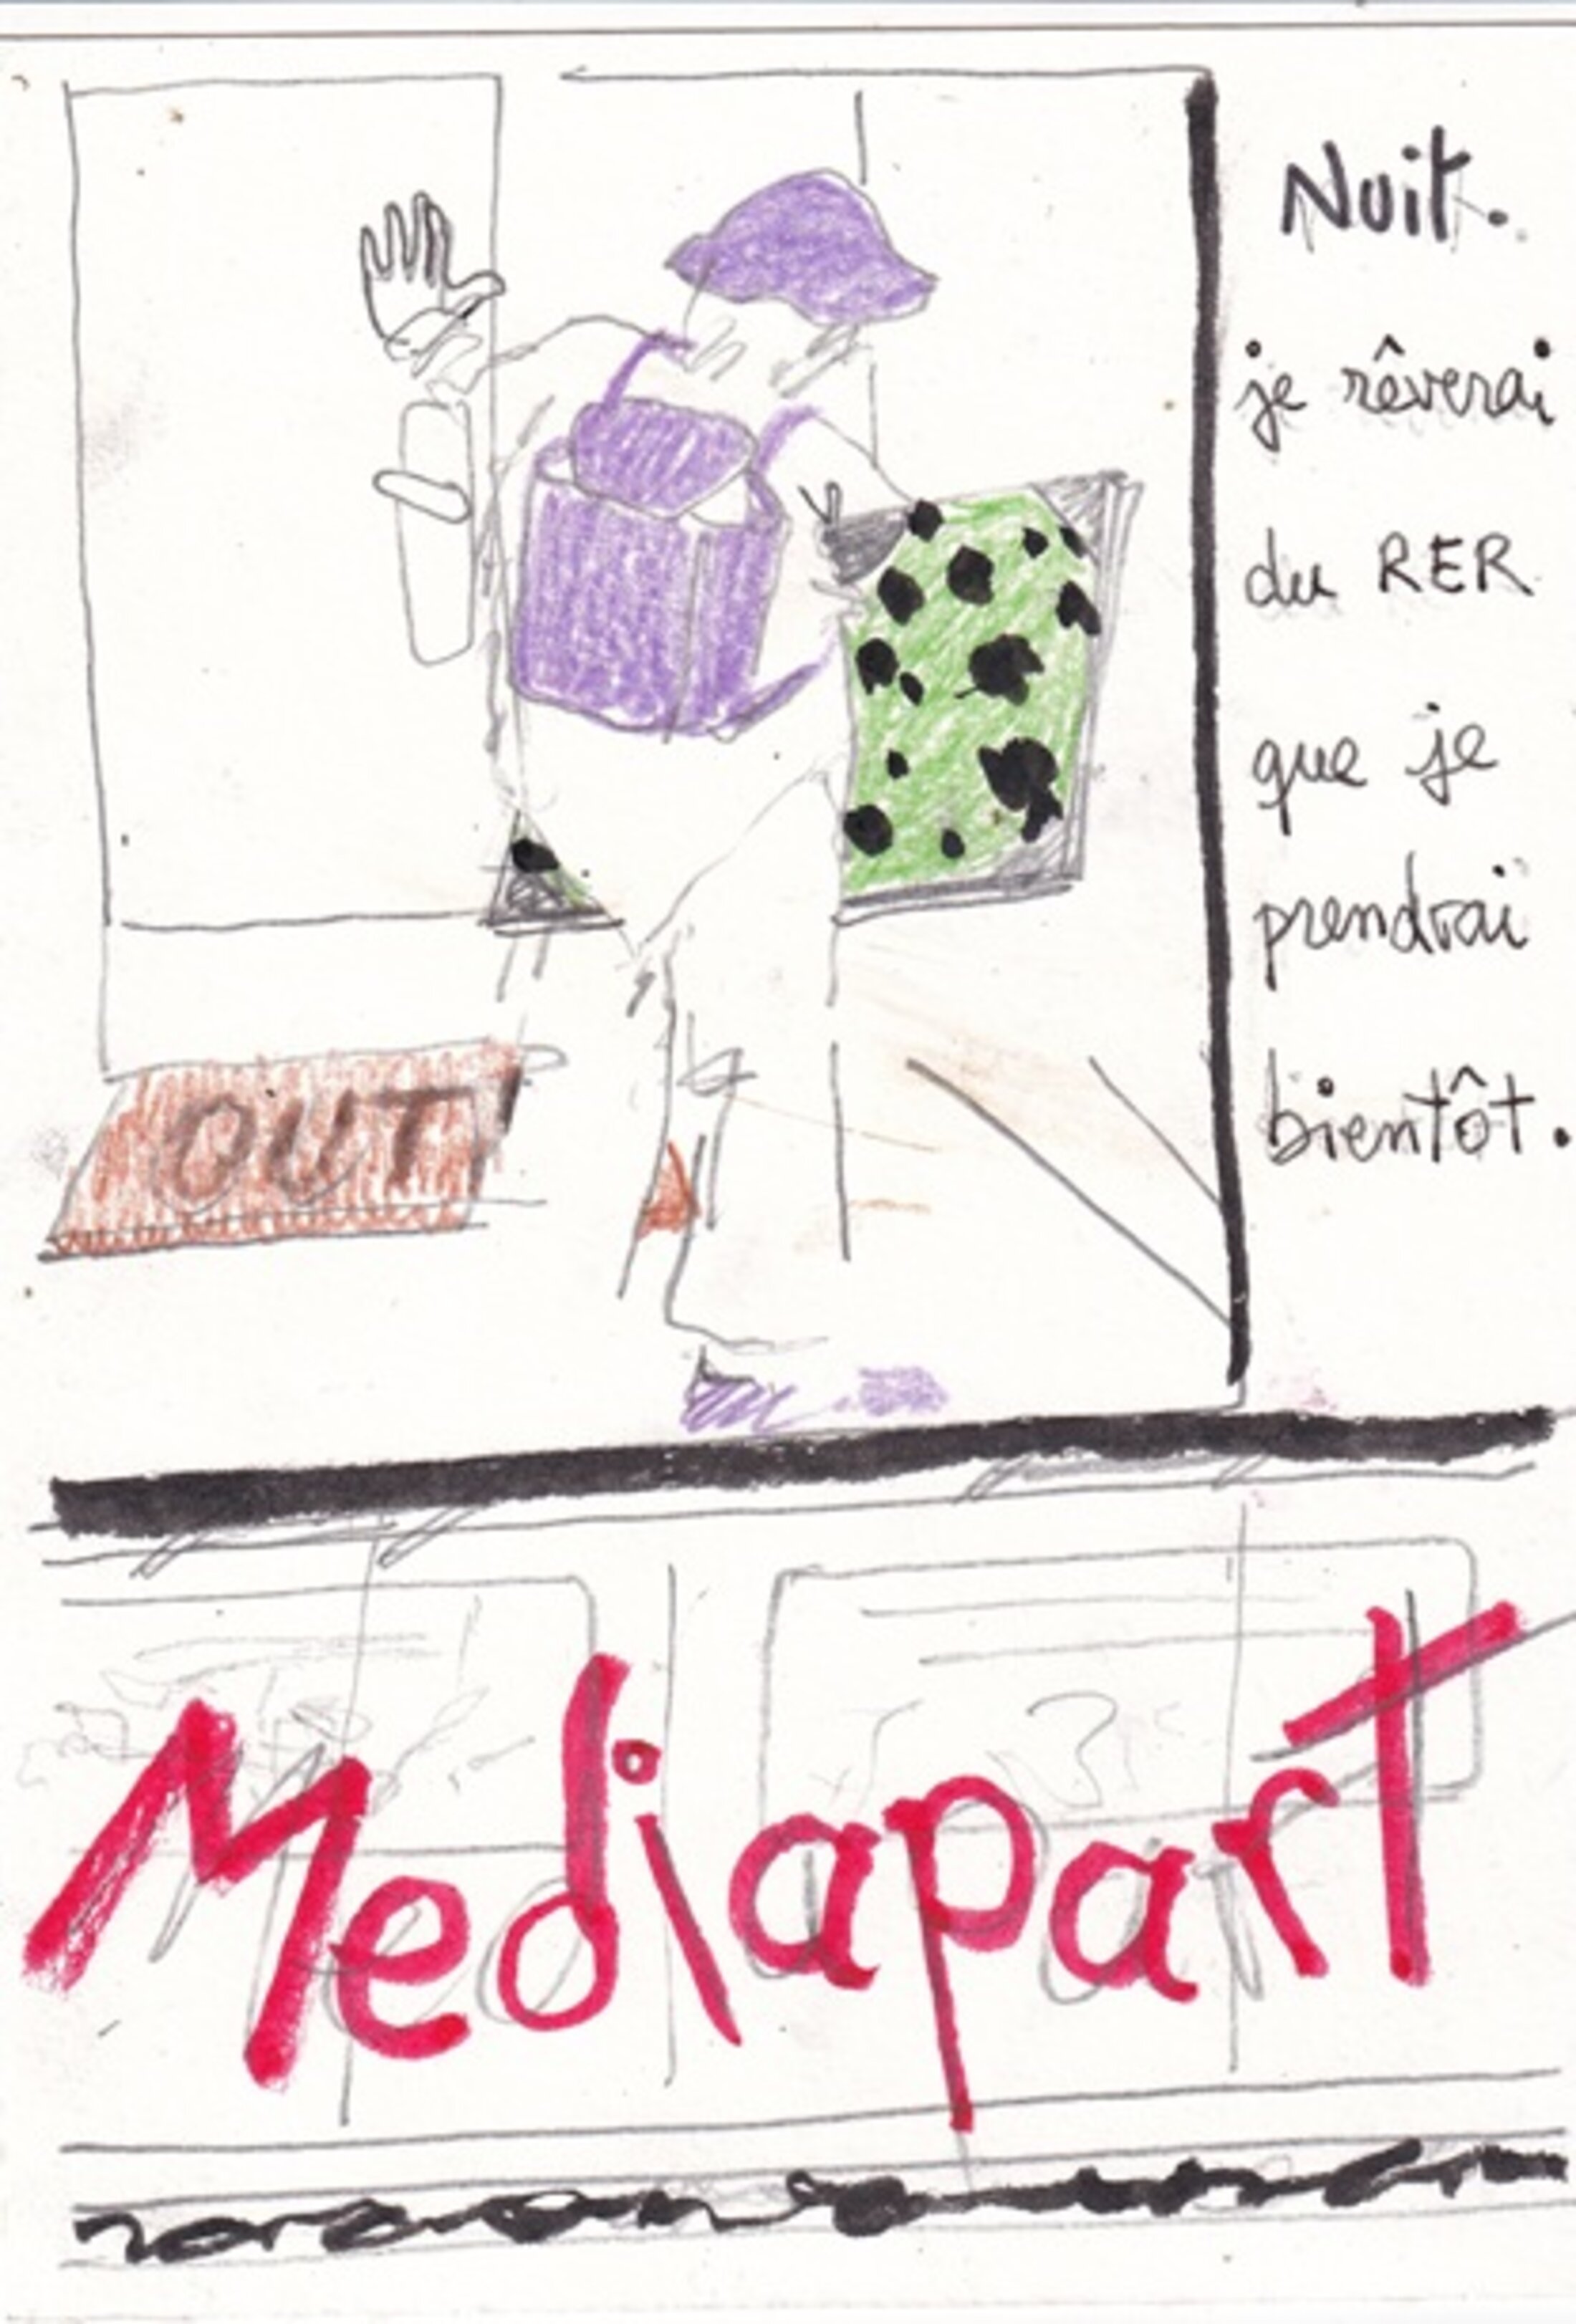 Nuit.
je rêverai
du RER
que je
prendrai
bientôt.
OUT
Mediapart